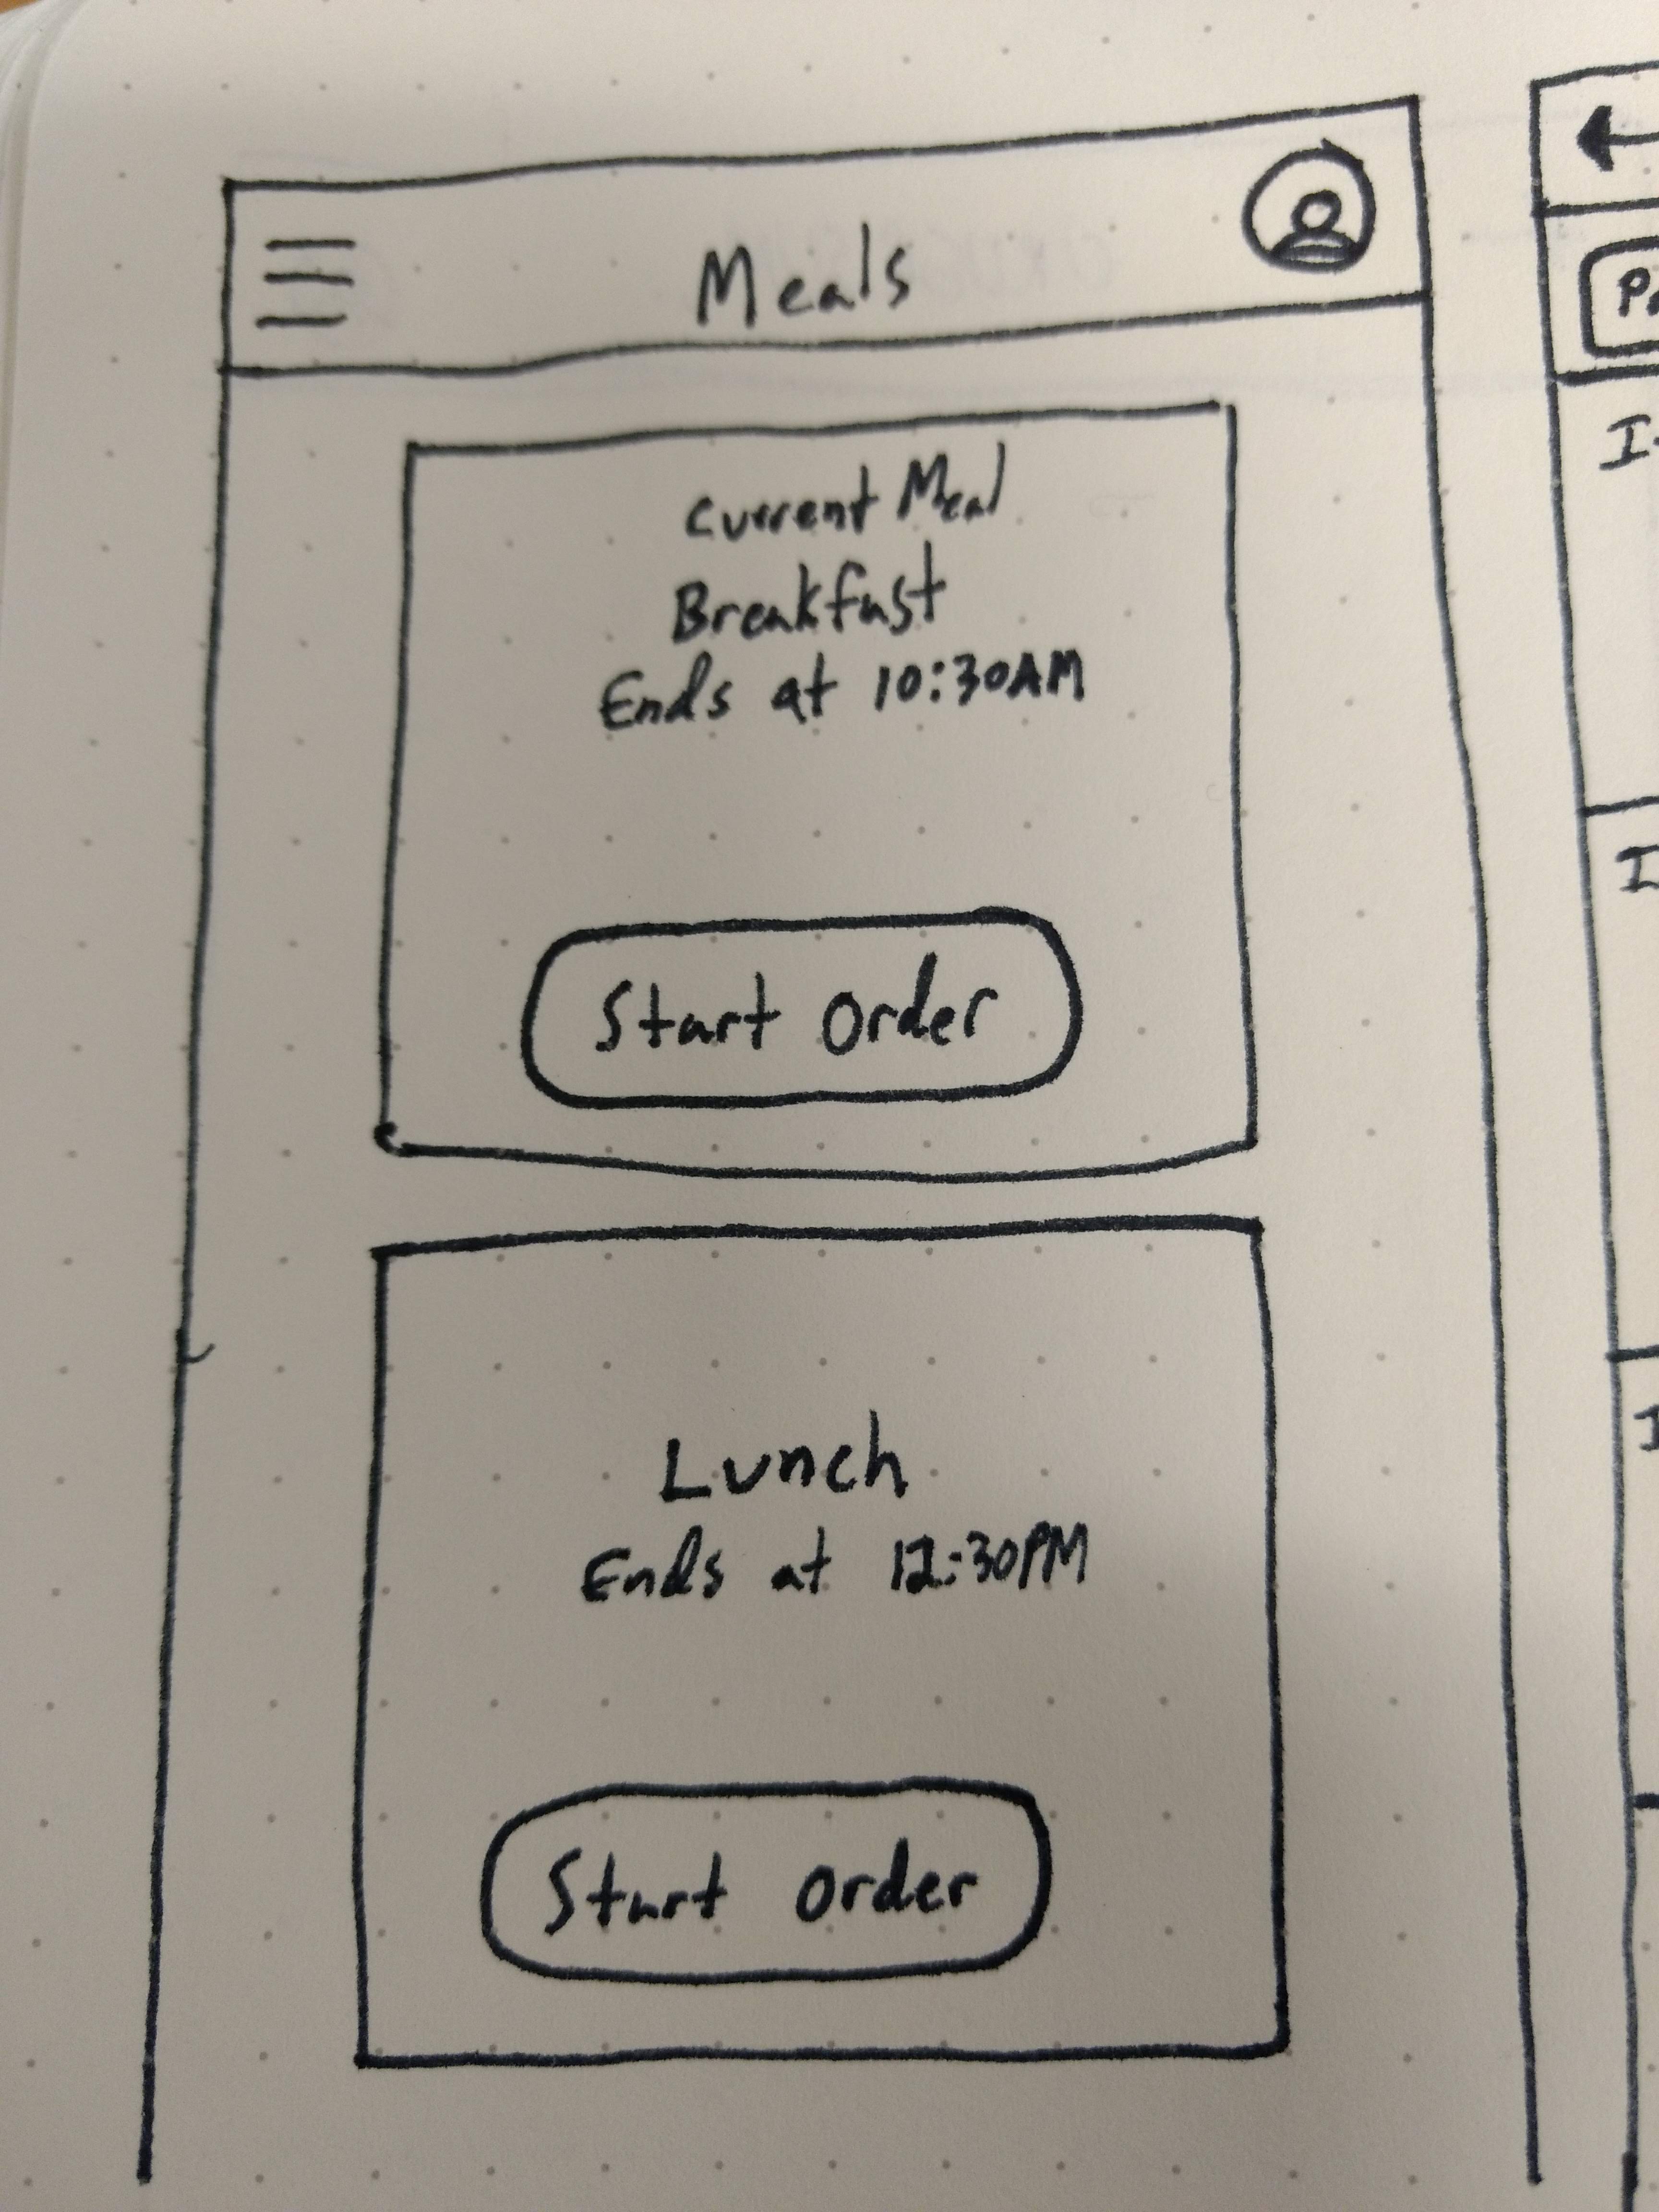 Meals
Current Meal
Breakfast
Ends at 10:30AM
Start Order
Lunch
Ends at 12:30PM
Start Order